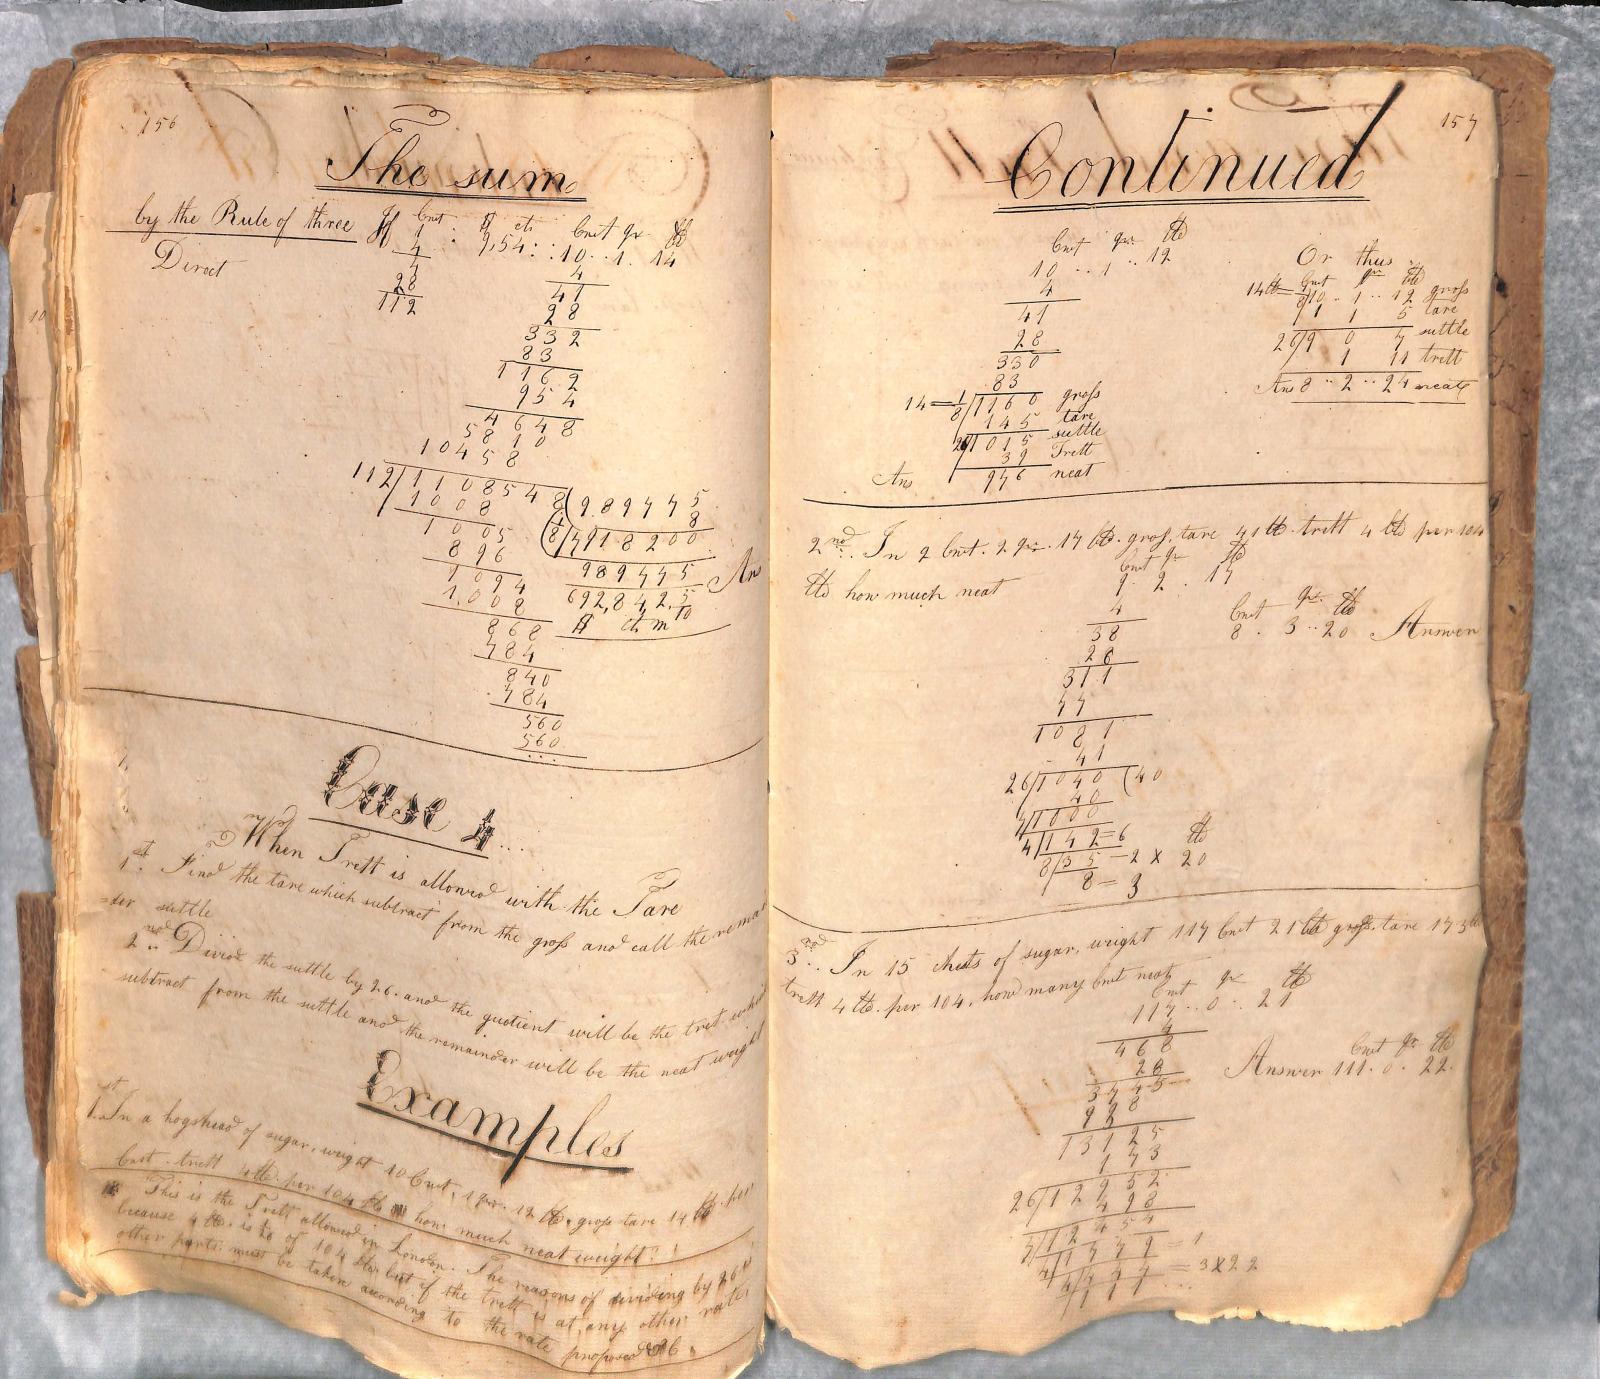 156
The sum
by the Rule of three
Direct
If Cwt $ cts Cwt qr lb
1 : 9,54 :: 10 .. 1 . 14
4 4
4 41
28 28
112 332
83
1162
954
4648
5810
10458
112/1108548(989775
1008 8
1005 8/7918200
896 989775 Ans
1094 692,842,5
1008 $ ct m
868
784
840
784
560
560
...
Case 4
When Trett is allowed with the Tare
1st. Find the tare which subtract from the gross and call the remai
=der suttle
2nd Divide the suttle by 26. and the quotient will be the tret which
subtract from the suttle and the remainder will be the neat weight
Examples
1st In a hogshead of sugar, weight 10 Cwt, 1 qr. 12 lb, gross tare 14 lb per
Cwt. trett 4 lb. per 104 lb how much neat weight?
This is the Trett allowed in London. The reasons of dividing by 26 is
because 4 lb. is of 104 lb but if the trett is at any other rate,
other parts must be taken according to the rate proposed &c
157
Continued
Cwt qr lb
10 .. 1 .. 12
4
41
28
330
83
14=1/8/1160 gross
145 tare
26/1015 suttle
39 Trett
Ans 976 neat
Or thus
Cwt qr lb
14lb= 10 . 1 .. 12 gross
1 1 5 tare
26/9 0 7 suttle
1 11 trett
Ans 8 .. 2 .. 24 neat
2nd. In 9 Cwt. 2 qr. 17 lb. gross, tare 41 lb. trett 4 lb per 104
lb how much neat
Cwt qr lb
9 . 2 . 17
4
38
28
311
77
1081
41
26/1040(40
40
7/1000
4/142=6 lb
8/35-2 x 20
8=3
Cwt qr lb
8 . 3 .. 20 Answer
3rd. In 15 chests of sugar, weight 117 Cwt 21 lb gross, tare 173 lb
trett 4 lb. per 104, how many Cwt neat
Cwt qr lb
117 .. 0 .. 21
4
468
28
3745
938
13125
173
26/12952
498
7/12454
4/1779=1
4/444=3x22
111 ...
Cwt qr lb
Answer 111. 0 . 22.